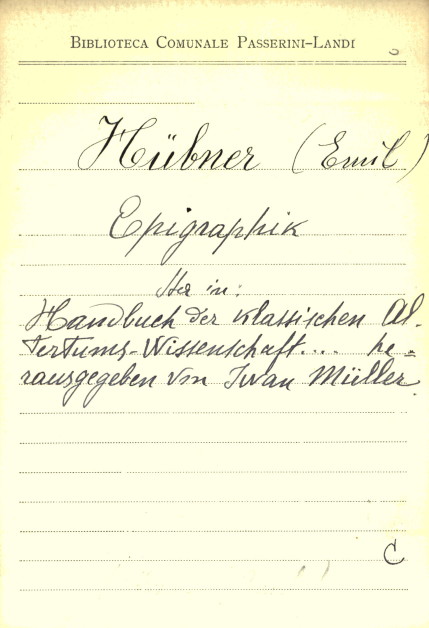 BIBLIOTECA COMUNALE PASSERINI-LANDI
Hübner (Emil)
Epigraphik
Sta in:
Handbuch der klassischen Al-
tertums-Wissenschaft.... he-
rausgegeben von Iwan Müller
C